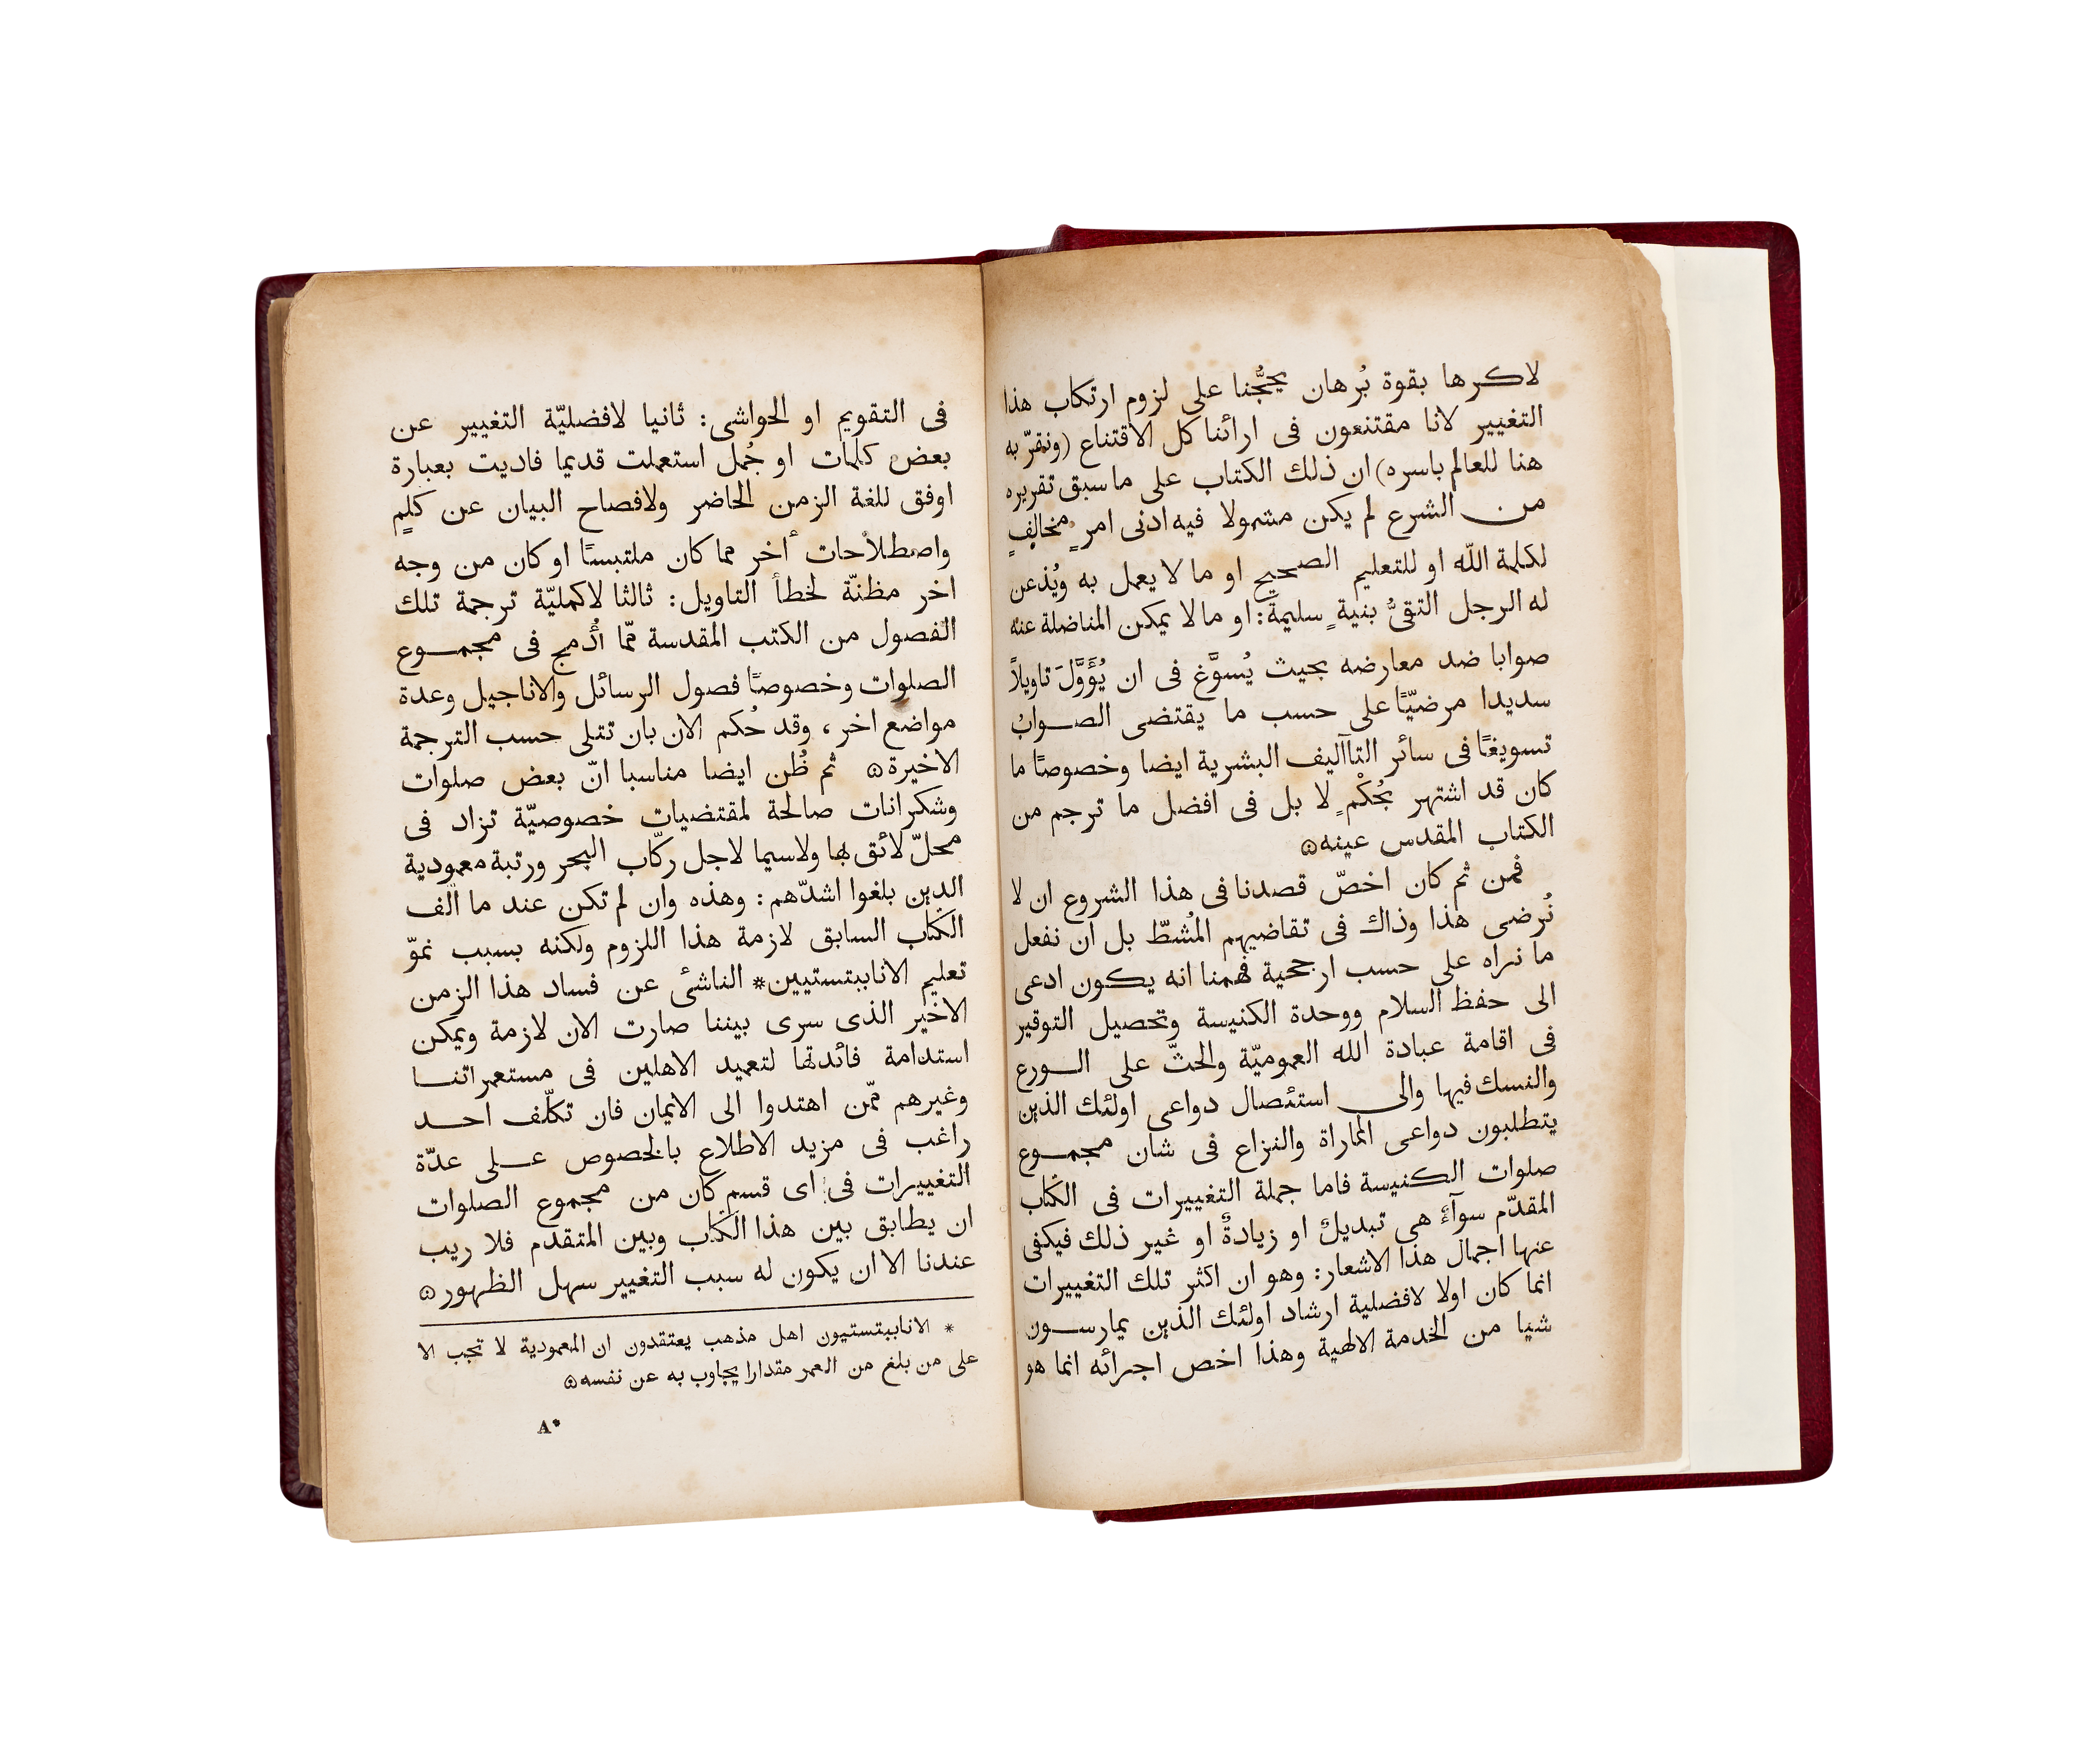 لاكرها بقوة بُرهان يحجُّنا على لزوم ارتكاب هذا
التغيير لانا مقتنعون فى ارائنا كل الاقتناع (ونقرّ به
هنا للعالم باسره) ان ذلك الكتاب على ما سبق تقريره
من الشرع لم يكن مشمولا فيه ادنى امرٍ مخالفٍ
لكلمة اللّه او للتعليم الصحيح او ما لا يعمل به ويُذعن
له الرجل التقىُّ بنيةٍ سليمةٍ: او ما لا يمكن المناضلة عنه
صوابا ضد معارضه بحيث يُسوَّغ فى ان يُؤَوَّلَ تاويلاً
سديدا مرضيًّا على حسب ما يقتضى الصواب
تسويغًا فى سائر التاآليف البشرية ايضا وخصوصًا ما
كان قد اشتهر بحُكْمٍ لا بل فى افضل ما ترجم من
الكتاب المقدس عينه۞
فمن ثم كان اخصّ قصدنا فى هذا الشروع ان لا
نُرضى هذا وذاك فى تقاضيهم المُشطّ بل ان نفعل
ما نراه على حسب ارجحية فهمنا انه يكون ادعى
الى حفظ السلام ووحدة الكنيسة وتحصيل التوقير
فى اقامة عبادة الله العموميّة والحثّ على الورع
والنسك فيها والى استئصال دواعى اولئك الذين
يتطلبون دواعى المماراة والنزاع فى شان مجموع
صلوات الكنيسة فاما جملة التغييرات فى الكتاب
المقدّم سوآءً هى تبديلٌ او زيادةٌ او غير ذلك فيكفى
عنها اجمال هذا الاشعار: وهو ان اكثر تلك التغييرات
انما كان اولا لافضلية ارشاد اولئك الذين يمارسون
شيا من الخدمة الالهية وهذا اخص اجرائه انما هو
فى التقويم او الحواشى: ثانيا لافضليّة التغيير عن
بعض كلمات او جُمل استعملت قديما فاديت بعبارة
اوفق للغة الزمن الحاضر ولافصاح البيان عن كلمٍ
واصطلاحات أخر مما كان ملتبسًا او كان من وجه
اخر مظنّة لخطأ التاويل: ثالثا لاكمليّة ترجمة تلك
الفصول من الكتب المقدسة ممّا أُدمج فى مجموع
الصلوات وخصوصًا فصول الرسائل والاناجيل وعدة
مواضع اخر، وقد حُكم الان بان تتلى حسب الترجمة
الاخيرة۞ ثم ظُن ايضا مناسبا انّ بعض صلوات
وشكرانات صالحة لمقتضيات خصوصيّة تزاد فى
محلّ لائق بها ولاسيما لاجل ركّاب البحر ورتبة معمودية
الذين بلغوا اشدّهم: وهذه وان لم تكن عند ما الف
الكتاب السابق لازمة هذا اللزوم ولكنه بسبب نموّ
تعليم الاناببتستيين* الناشئ عن فساد هذا الزمن
الاخير الذى سرى بيننا صارت الان لازمة ويمكن
استدامة فائدتها لتعميد الاهلين فى مستعمراتنا
وغيرهم ممّن اهتدوا الى الايمان فان تكلّف احد
راغب فى مزيد الاطلاع بالخصوص على عدّة
التغييرات فى اى قسم كان من مجموع الصلوات
ان يطابق بين هذا الكتاب وبين المتقدم فلا ريب
عندنا الا ان يكون له سبب التغيير سهل الظهور۞
* الاناببتستيون اهل مذهب يعتقدون ان المعمودية لا تجب الا
على من بلغ من العمر مقدارا يجاوب به عن نفسه۞
A*